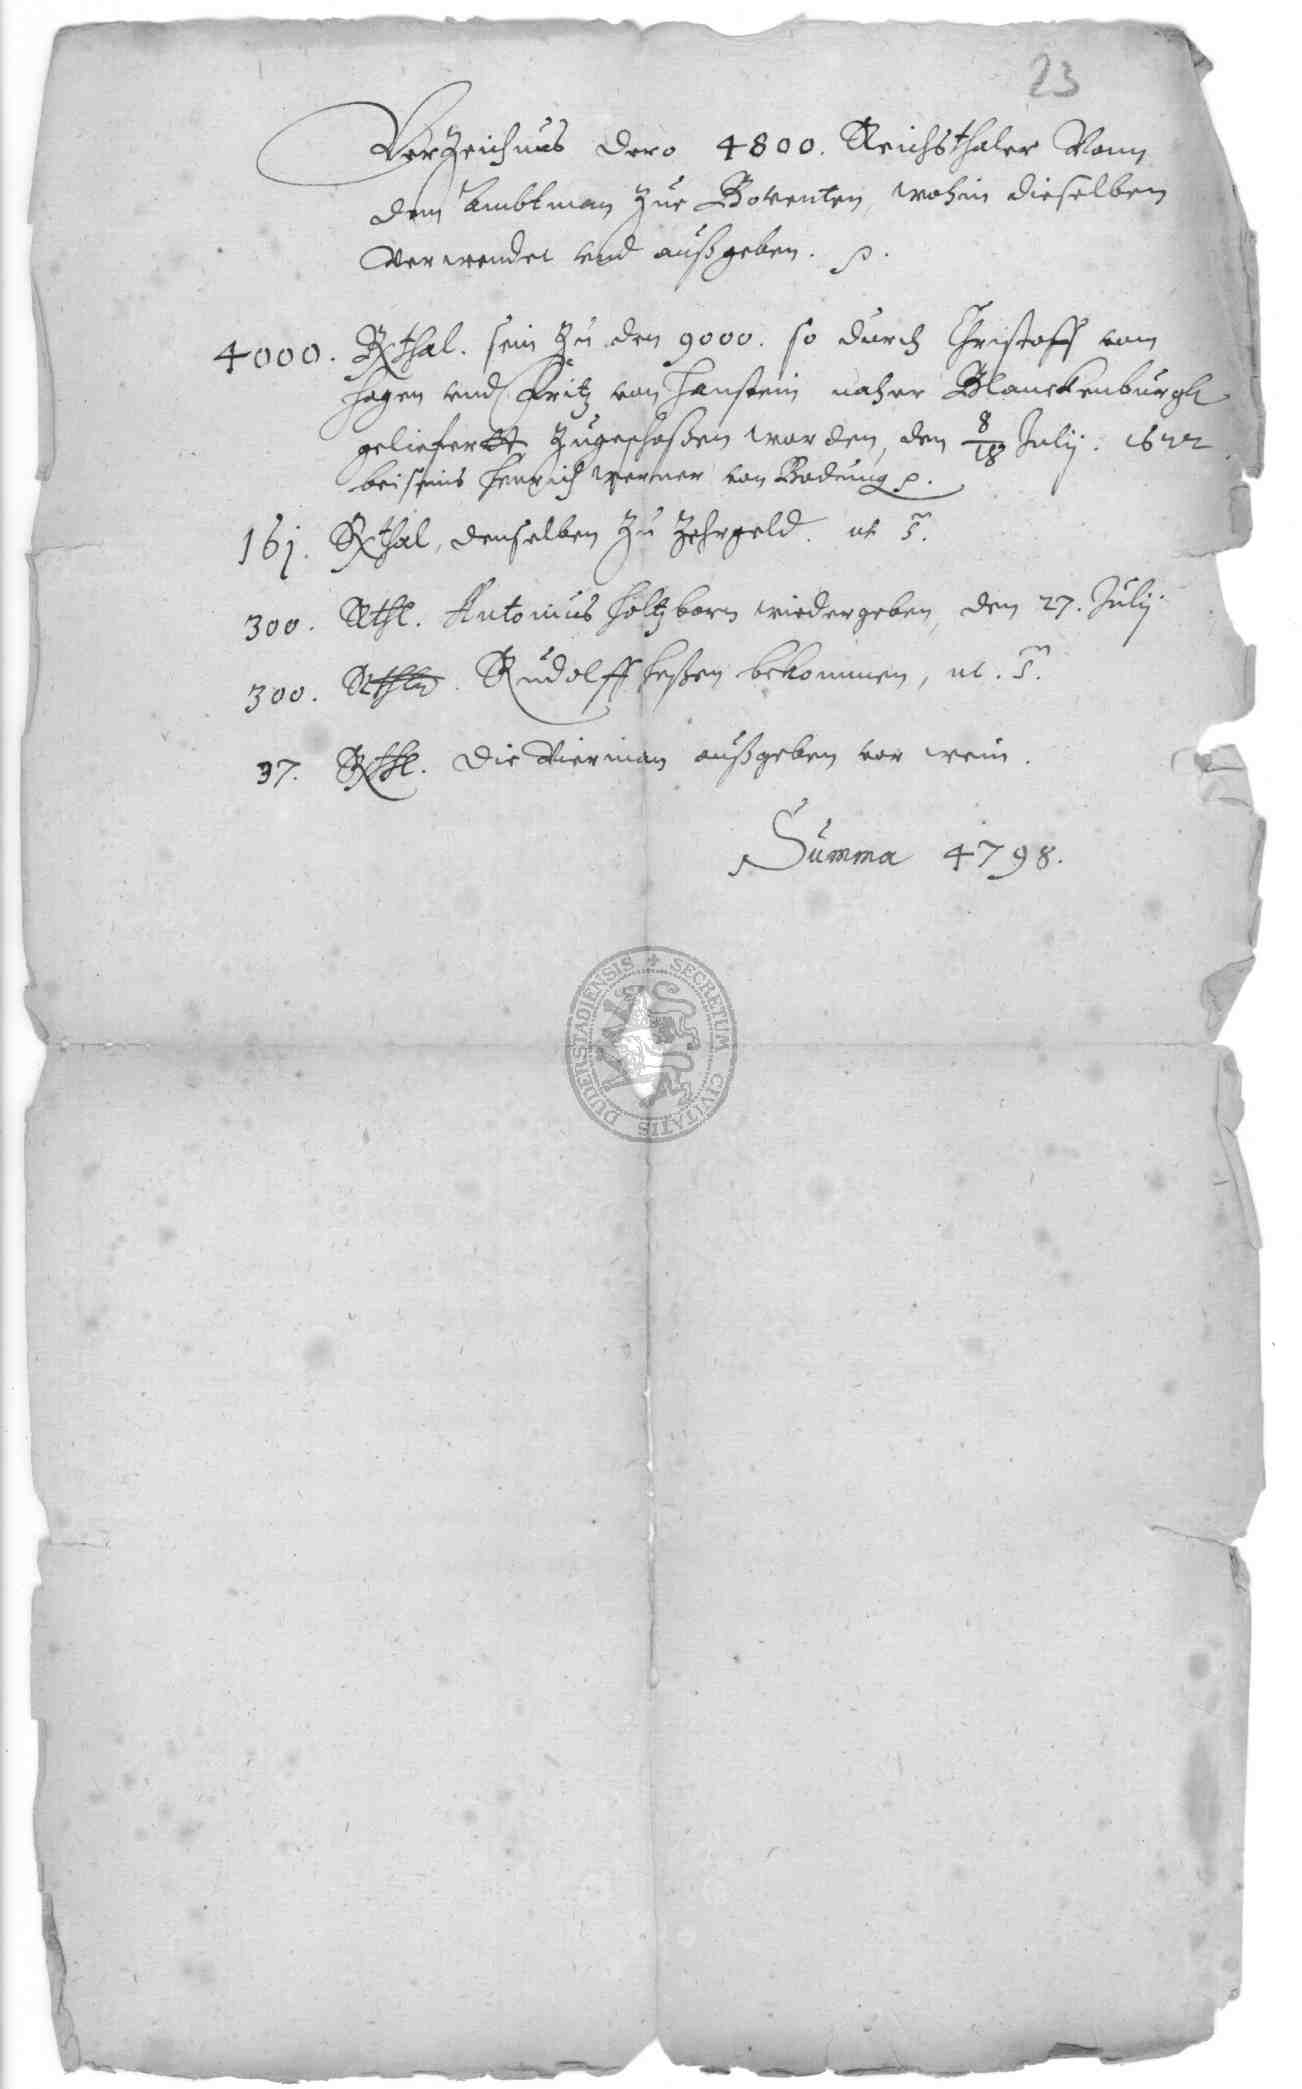 23
Verzeichnus dero 4800. Reichsthaler Vonn
dem Ambtman zue Boventen, wohin dieselben
verwendet vnd außgeben. p.
4000. Rthal. sein zu den 9000. so durch Christoff von
Hagen vnd Fritz von Hanstein naher Blanckenburgk
geliefertt zugeschoßen worden, den 8/18 Julij. 1622
beiseins Henrich Werner von Bodung p.
161. Rthal, denselben zu Zehrgeld. ut s.
300. Rthl. Antonius Holtzborn wiedergeben, den 27. Julij
300. Rthlr. Rudolff Heßen bekommen, ut. s.
37. Rthl. die Vierman außgeben vor wein.
Summa 4798.
SECRETUM CIVITATIS DUDERSTADIENSIS